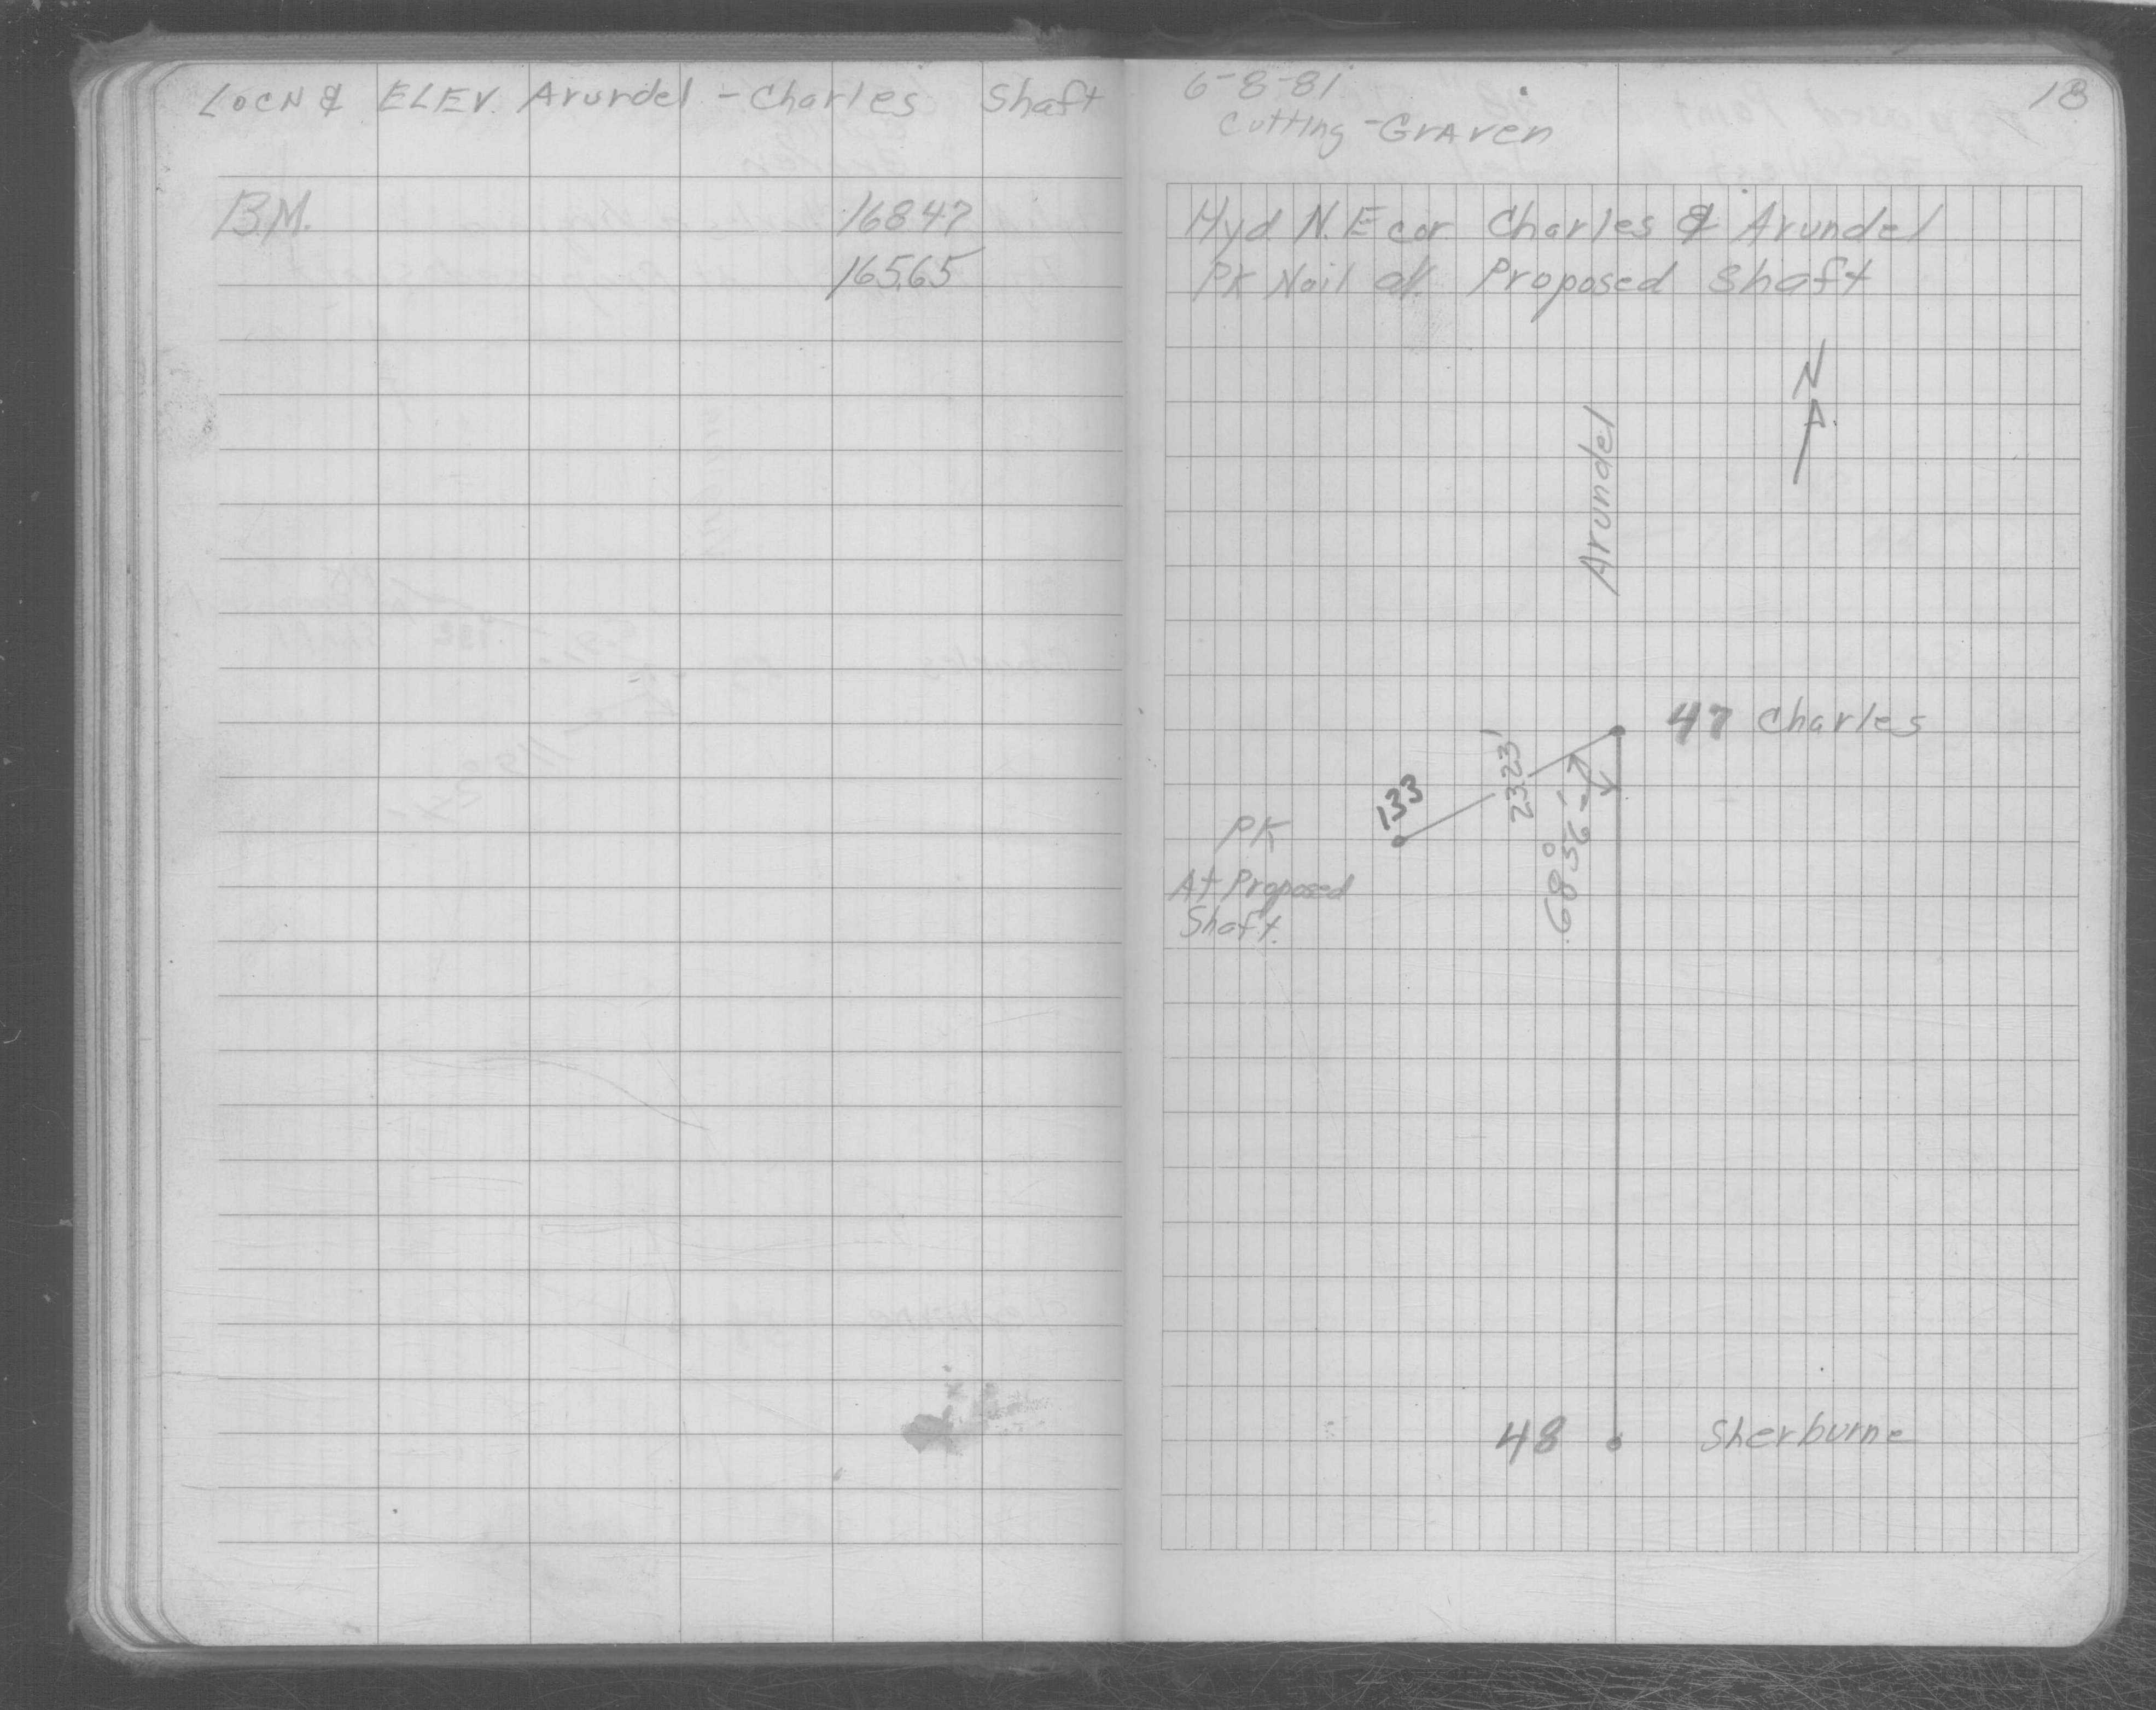 LOCN & ELEV. Arundel - Charles Shaft
B.M. 168.47
165.65
6-8-81 18
Cutting - Graven
Hyd N.E cor Charles & Arundel
PK Nail at Proposed Shaft
N
Arundel
47 Charles
133
23.23'
68°36'
PK
At Proposed
Shaft.
48 Sherburne